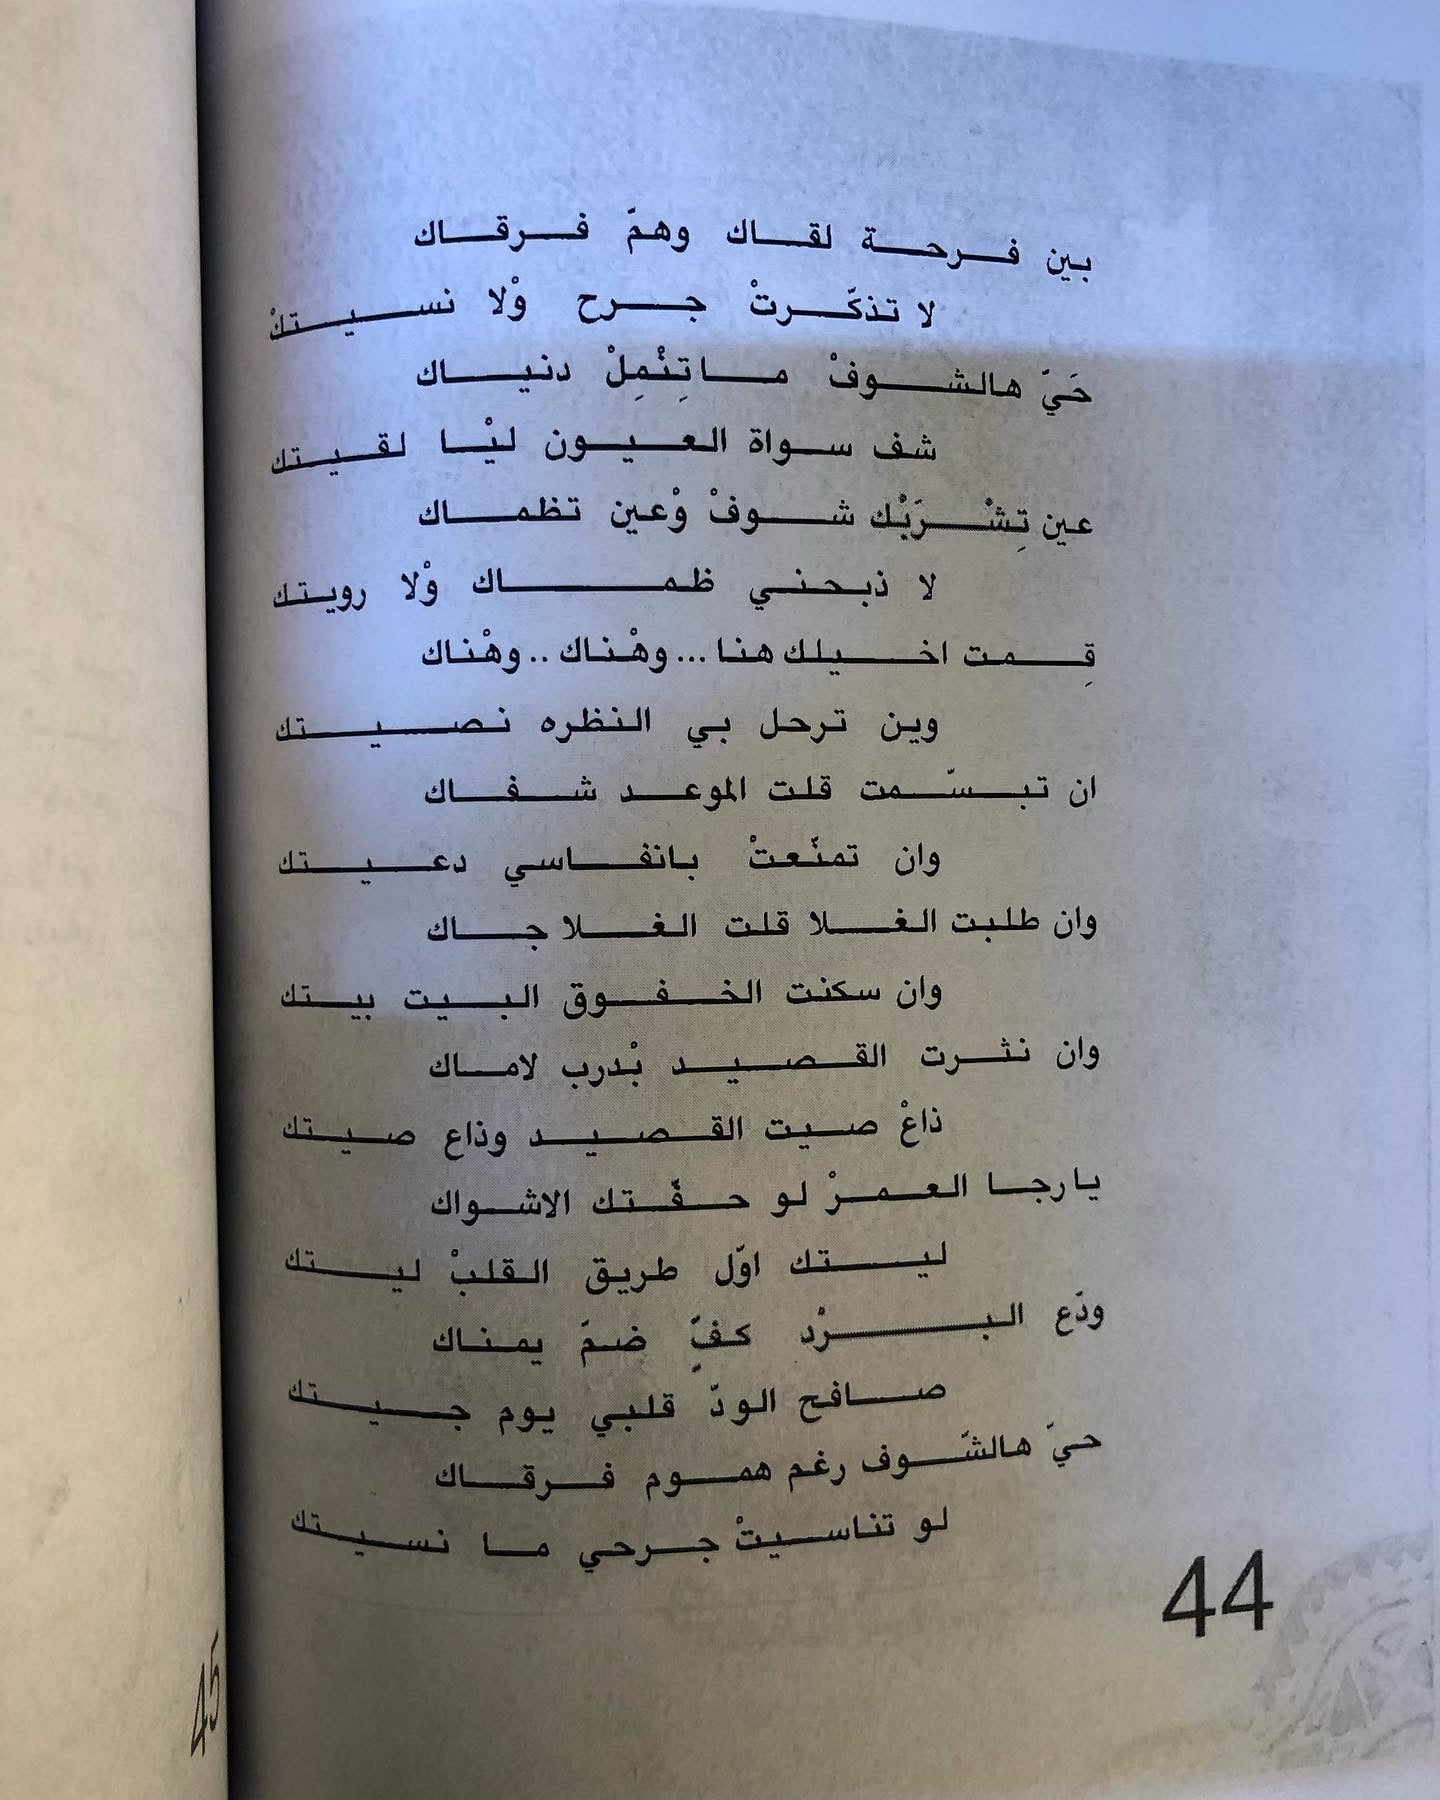 بين فرحة لقاك وهمّ فرقاك
لا تذكّرتْ جرح وْلا نسيتكْ
حَيّ هالشوفْ ماتِنْمِلْ دنياك
شف سواة العيون ليْا لقيتك
عين تِشْرَبْك شوفْ وْعين تظماك
لا ذبحني ظماك وْلا رويتك
قِمت اخيلك هنا ... وهْناك .. وهْناك
وين ترحل بي النظره نصيتك
ان تبسّمت قلت الموعد شفاك
وان تمنّعتْ بانفاسي دعيتك
وان طلبت الغلا قلت الغلا جاك
وان سكنت الخفوق البيت بيتك
وان نثرت القصيد بْدرب لاماك
ذاعْ صيت القصيد وذاع صيتك
يارجا العمرْ لو حفّتك الاشواك
ليتك اوّل طريق القلبْ ليتك
ودّع البرْد كفٍّ ضمّ يمناك
صافح الودّ قلبي يوم جيتك
حيّ هالشّوف رغم هموم فرقاك
لو تناسيتْ جرحي ما نسيتك
44
45